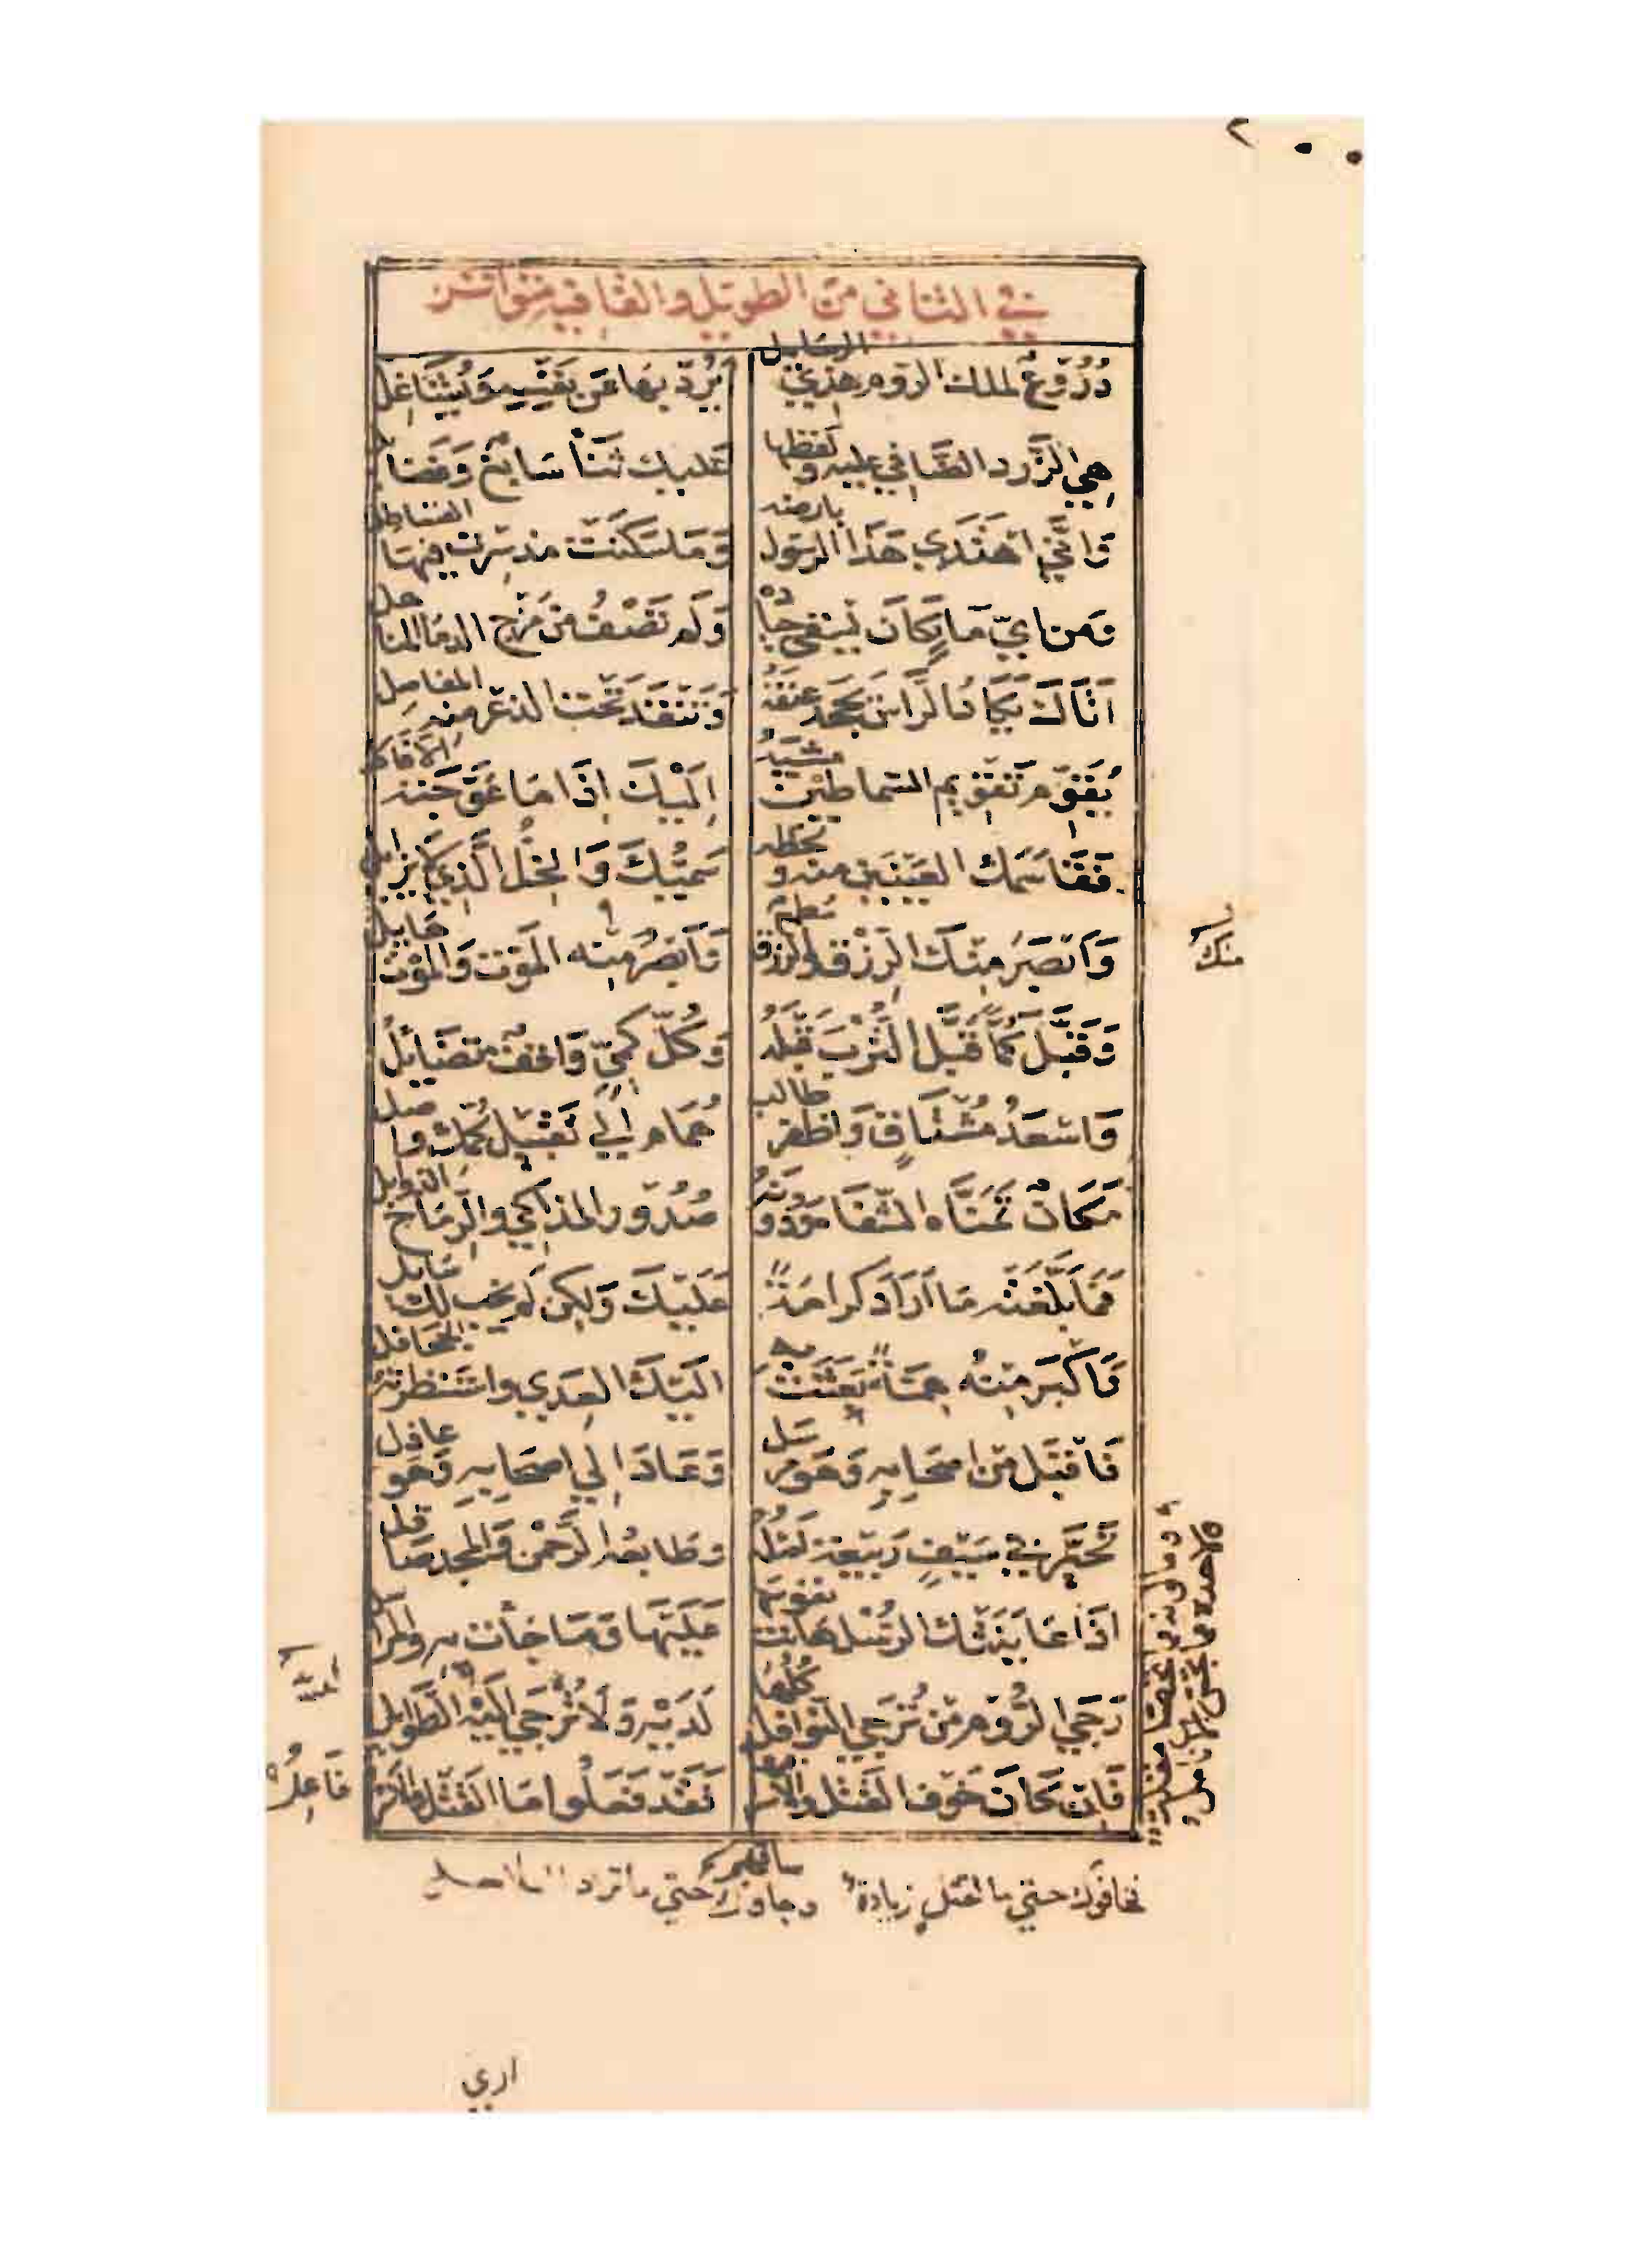 في الثاني من الطويل والقافية متواتر
دُرُوعٌ لملك الروم هذي الرسايل يَرُدّ بها عن نفسه ويُشَاغِل
هي الزرد الضافي عليه ولفظها عليك ثنا سابغ وفضايل
وانّي اهتدي هذا الرسول بارضه وما سكنت مذ سرت فيها القساطل
ومن ايّ ماءٍ كان يسقي جياده ولم تصف من مزج الدما المناهل
اتاك يكاد الراس يجحد عنقه وتنقد تحت الذعر منه المفاصل
يقوّم تقويم السماطين مشيه اليك اذا ما عوّجته الافاكل
فقاسمك العينين منه ولحظه سميّك والخل الذي لا يزايل
وابصر منك الرزق والرزق مطمع وابصر منه الموت والموت هايل
منك
وقبّل كُمًّا قبّل الترب قبله وكلّ كميّ واقف متضائل
واسعد مشتاقٍ واظفر طالب همام الي تقبيل كمّك واصل
مكانٌ تمنّاه الشفاه ودونه صدور المذاكي والرماح الذوابل
فما بلّغته ما اراد كرامة عليك ولكن لم يخب لك سايل
فاكبر منه همةً بعثت به اليك العدي واستنظرته الجحافل
فاقبل من اصحابه وهو مرسل وعاد الي اصحابه وهو عاذل
تحيّر في سيفٍ ربيعة اصله وطابعه الرحمن والمجد صاقل
وما لونه مما تحصّل مقلة ولا حده مما تجسّ الانامل
اذا عاينتك الرسل هانت نفوسها عليها وما جاءت به والمراسل
رجي الروم من تُرجي النوافل كلها لديه ولا تُرجي لديه الطوايل
فان كان خوف القتل والاسر ساقهم فقد فعلوا ما القتل والاسر فاعل
فخافوك حتي ما لقتل زيادة وجاوك حتي ما تراد السلاسل
اري